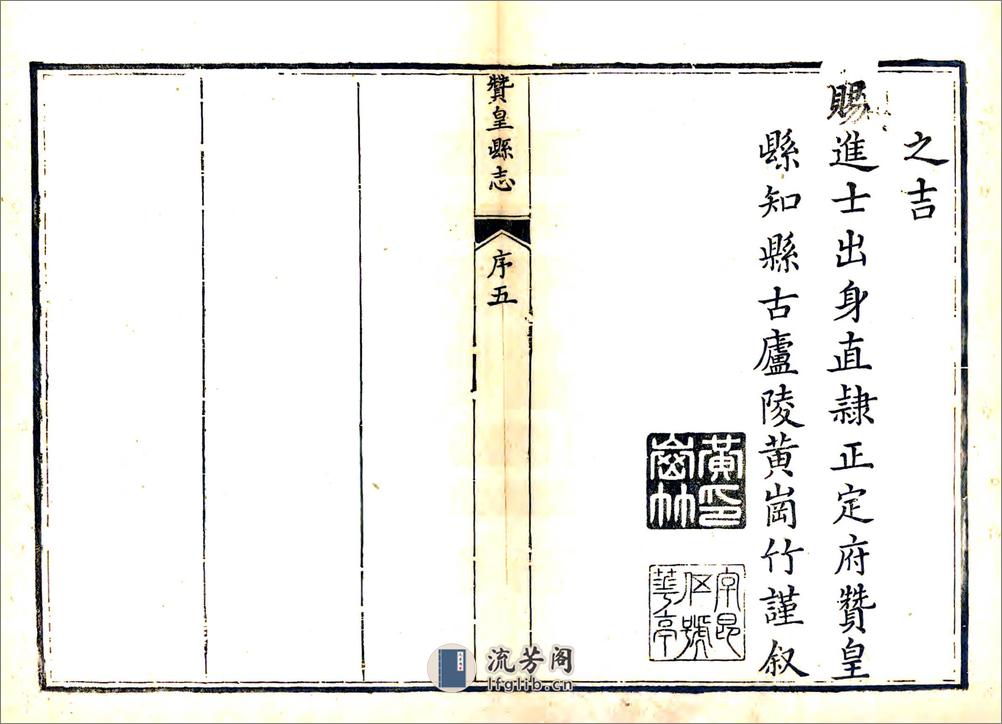 之吉
賜進士出身直隸正定府贊皇
縣知縣古廬陵黄崗竹謹叙
黄印崗竹
贊皇縣志
序五
流芳阁
lfglib.cn